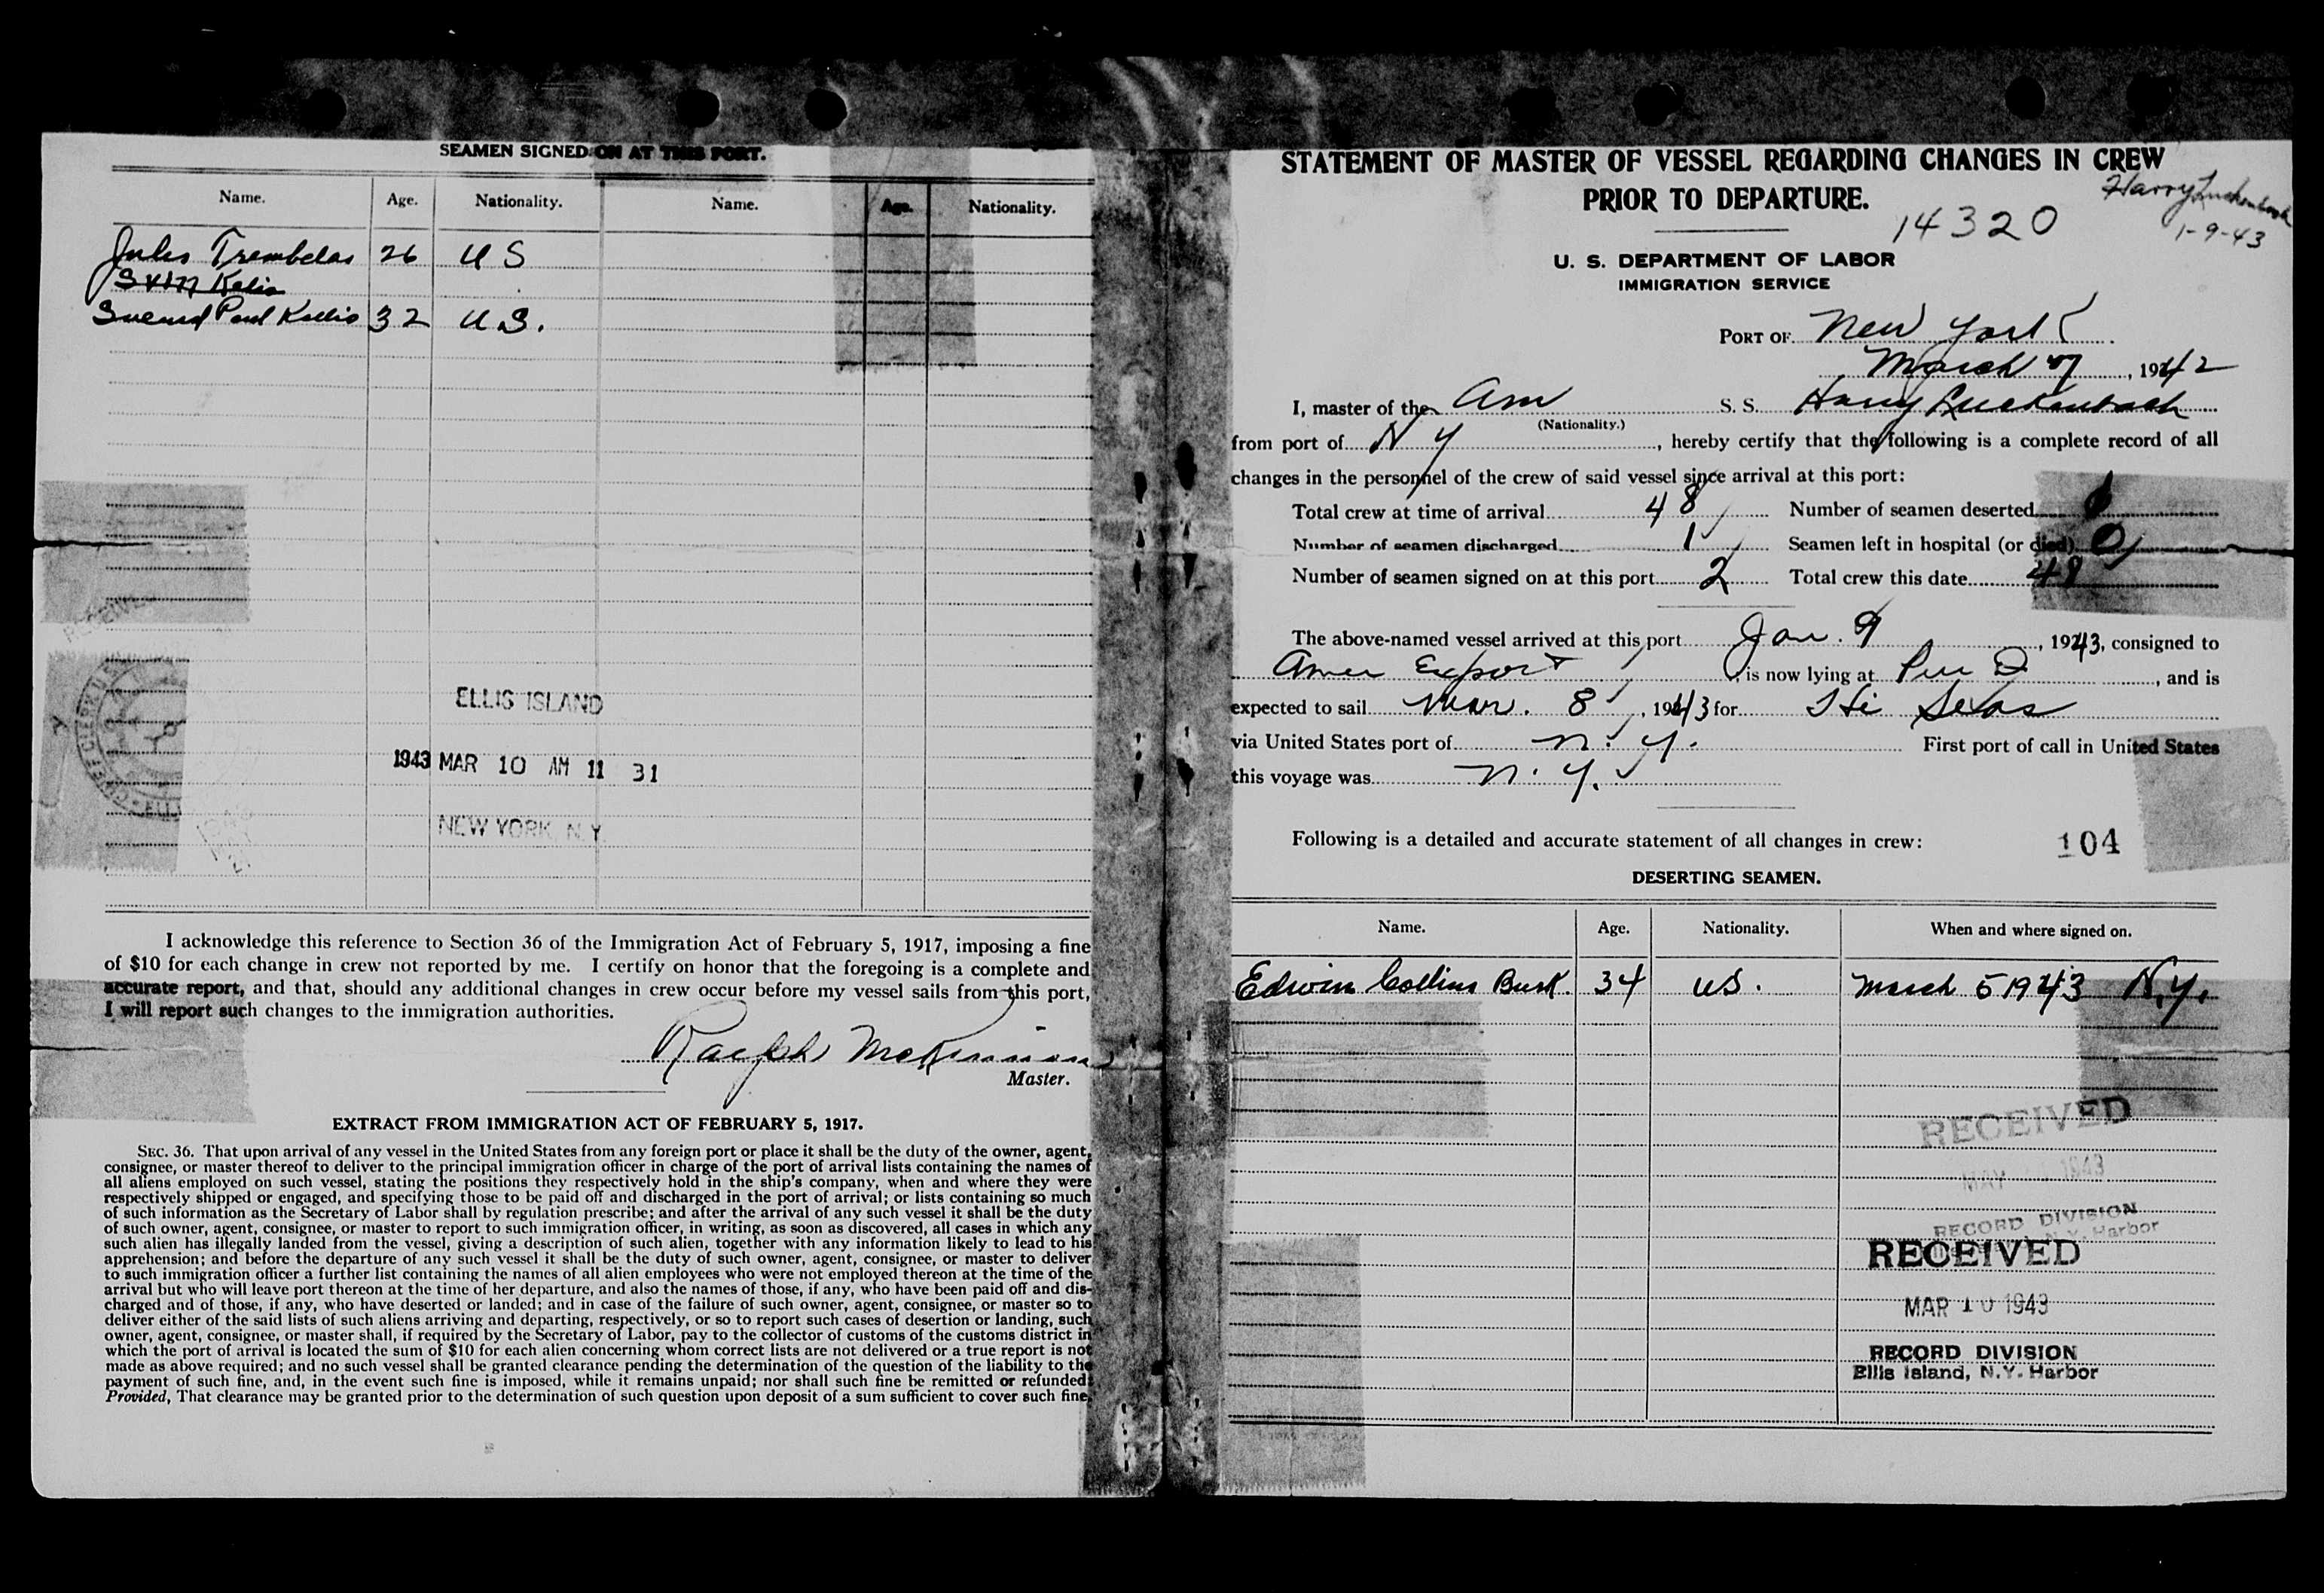 SEAMEN SIGNED ON AT THIS PORT.
Name. Age. Nationality. Name. Age. Nationality.
Jules Trembelas 26 U S
Paul 32 U.S.
ELLIS ISLAND
1943 MAR 10 AM 11 31
NEW YORK N.Y.
I acknowledge this reference to Section 36 of the Immigration Act of February 5, 1917, imposing a fine
of $10 for each change in crew not reported by me. I certify on honor that the foregoing is a complete and
accurate report, and that, should any additional changes in crew occur before my vessel sails from this port,
I will report such changes to the immigration authorities.
Ralph McKinnon
Master.
EXTRACT FROM IMMIGRATION ACT OF FEBRUARY 5, 1917.
SEC. 36. That upon arrival of any vessel in the United States from any foreign port or place it shall be the duty of the owner, agent,
consignee, or master thereof to deliver to the principal immigration officer in charge of the port of arrival lists containing the names of
all aliens employed on such vessel, stating the positions they respectively hold in the ship's company, when and where they were
respectively shipped or engaged, and specifying those to be paid off and discharged in the port of arrival; or lists containing so much
of such information as the Secretary of Labor shall by regulation prescribe; and after the arrival of any such vessel it shall be the duty
of such owner, agent, consignee, or master to report to such immigration officer, in writing, as soon as discovered, all cases in which any
such alien has illegally landed from the vessel, giving a description of such alien, together with any information likely to lead to his
apprehension; and before the departure of any such vessel it shall be the duty of such owner, agent, consignee, or master to deliver
to such immigration officer a further list containing the names of all alien employees who were not employed thereon at the time of the
arrival but who will leave port thereon at the time of her departure, and also the names of those, if any, who have been paid off and dis-
charged and of those, if any, who have deserted or landed; and in case of the failure of such owner, agent, consignee, or master so to
deliver either of the said lists of such aliens arriving and departing, respectively, or so to report such cases of desertion or landing, such
owner, agent, consignee, or master shall, if required by the Secretary of Labor, pay to the collector of customs of the customs district in
which the port of arrival is located the sum of $10 for each alien concerning whom correct lists are not delivered or a true report is not
made as above required; and no such vessel shall be granted clearance pending the determination of the question of the liability to the
payment of such fine, and, in the event such fine is imposed, while it remains unpaid; nor shall such fine be remitted or refunded:
Provided, That clearance may be granted prior to the determination of such question upon deposit of a sum sufficient to cover such fine.
STATEMENT OF MASTER OF VESSEL REGARDING CHANGES IN CREW
PRIOR TO DEPARTURE.
Harry Luckenbach
14320
1-9-43
U. S. DEPARTMENT OF LABOR
IMMIGRATION SERVICE
PORT OF New York
March 7, 1942
I, master of the Am S. S. Harry Luckenbach
(Nationality.)
from port of N Y, hereby certify that the following is a complete record of all
changes in the personnel of the crew of said vessel since arrival at this port:
Total crew at time of arrival 48 Number of seamen deserted
Number of seamen discharged 1 Seamen left in hospital (or died) 0
Number of seamen signed on at this port 2 Total crew this date 48
The above-named vessel arrived at this port Jan. 9, 1943, consigned to
Amer Export, is now lying at Pier D, and is
expected to sail Mar. 8, 1943 for Hi Seas
via United States port of N. Y. First port of call in United States
this voyage was N. Y.
Following is a detailed and accurate statement of all changes in crew: 104
DESERTING SEAMEN.
Name. Age. Nationality. When and where signed on.
Edwin Collins Busk. 34 US. March 5 1943 N.Y.
RECEIVED
MAY 1943
RECORD DIVISION
N.Y. Harbor
RECEIVED
MAR 10 1943
RECORD DIVISION
Ellis Island, N.Y. Harbor